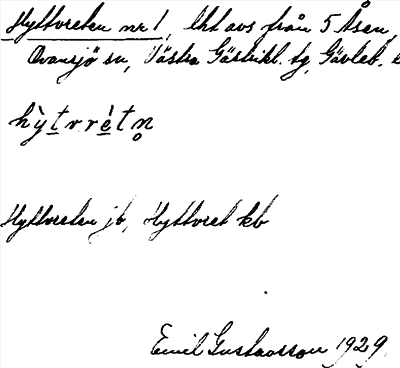 Hyttvreten nr 1, lht avs från 5 Åsen,
Ovansjö sn, Västra Gästrikl. tg, Gävleb. l
hy̆tvrètn̥
Hyttvreten jb, Hyttvret kb
Emil Gustavsson 1929.